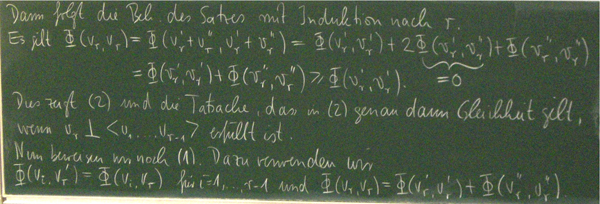 Dann folgt die Beh. des Satzes mit Induktion nach r.
Es gilt Φ(v_r, v_r) = Φ(v_r' + v_r'', v_r' + v_r'') = Φ(v_r', v_r') + 2Φ(v_r', v_r'') + Φ(v_r'', v_r'')
= Φ(v_r', v_r') + Φ(v_r'', v_r'') ⩾ Φ(v_r', v_r'). =0
Dies zeigt (2) und die Tatsache, dass in (2) genau dann Gleichheit gilt,
wenn v_r ⊥ <v_1, ..., v_{r-1}> erfüllt ist.
Nun beweisen wir noch (1). Dazu verwenden wir
Φ(v_i, v_r') = Φ(v_i, v_r) für i=1, ..., r-1 und Φ(v_r, v_r) = Φ(v_r', v_r') + Φ(v_r'', v_r'')